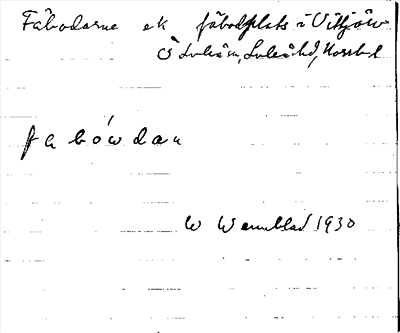 Fäbodarne ek fäbodplats i Vittjärv
Ö Luleåm, Luleå hd, Norrb l
fabówdan
W Wennblad 1930